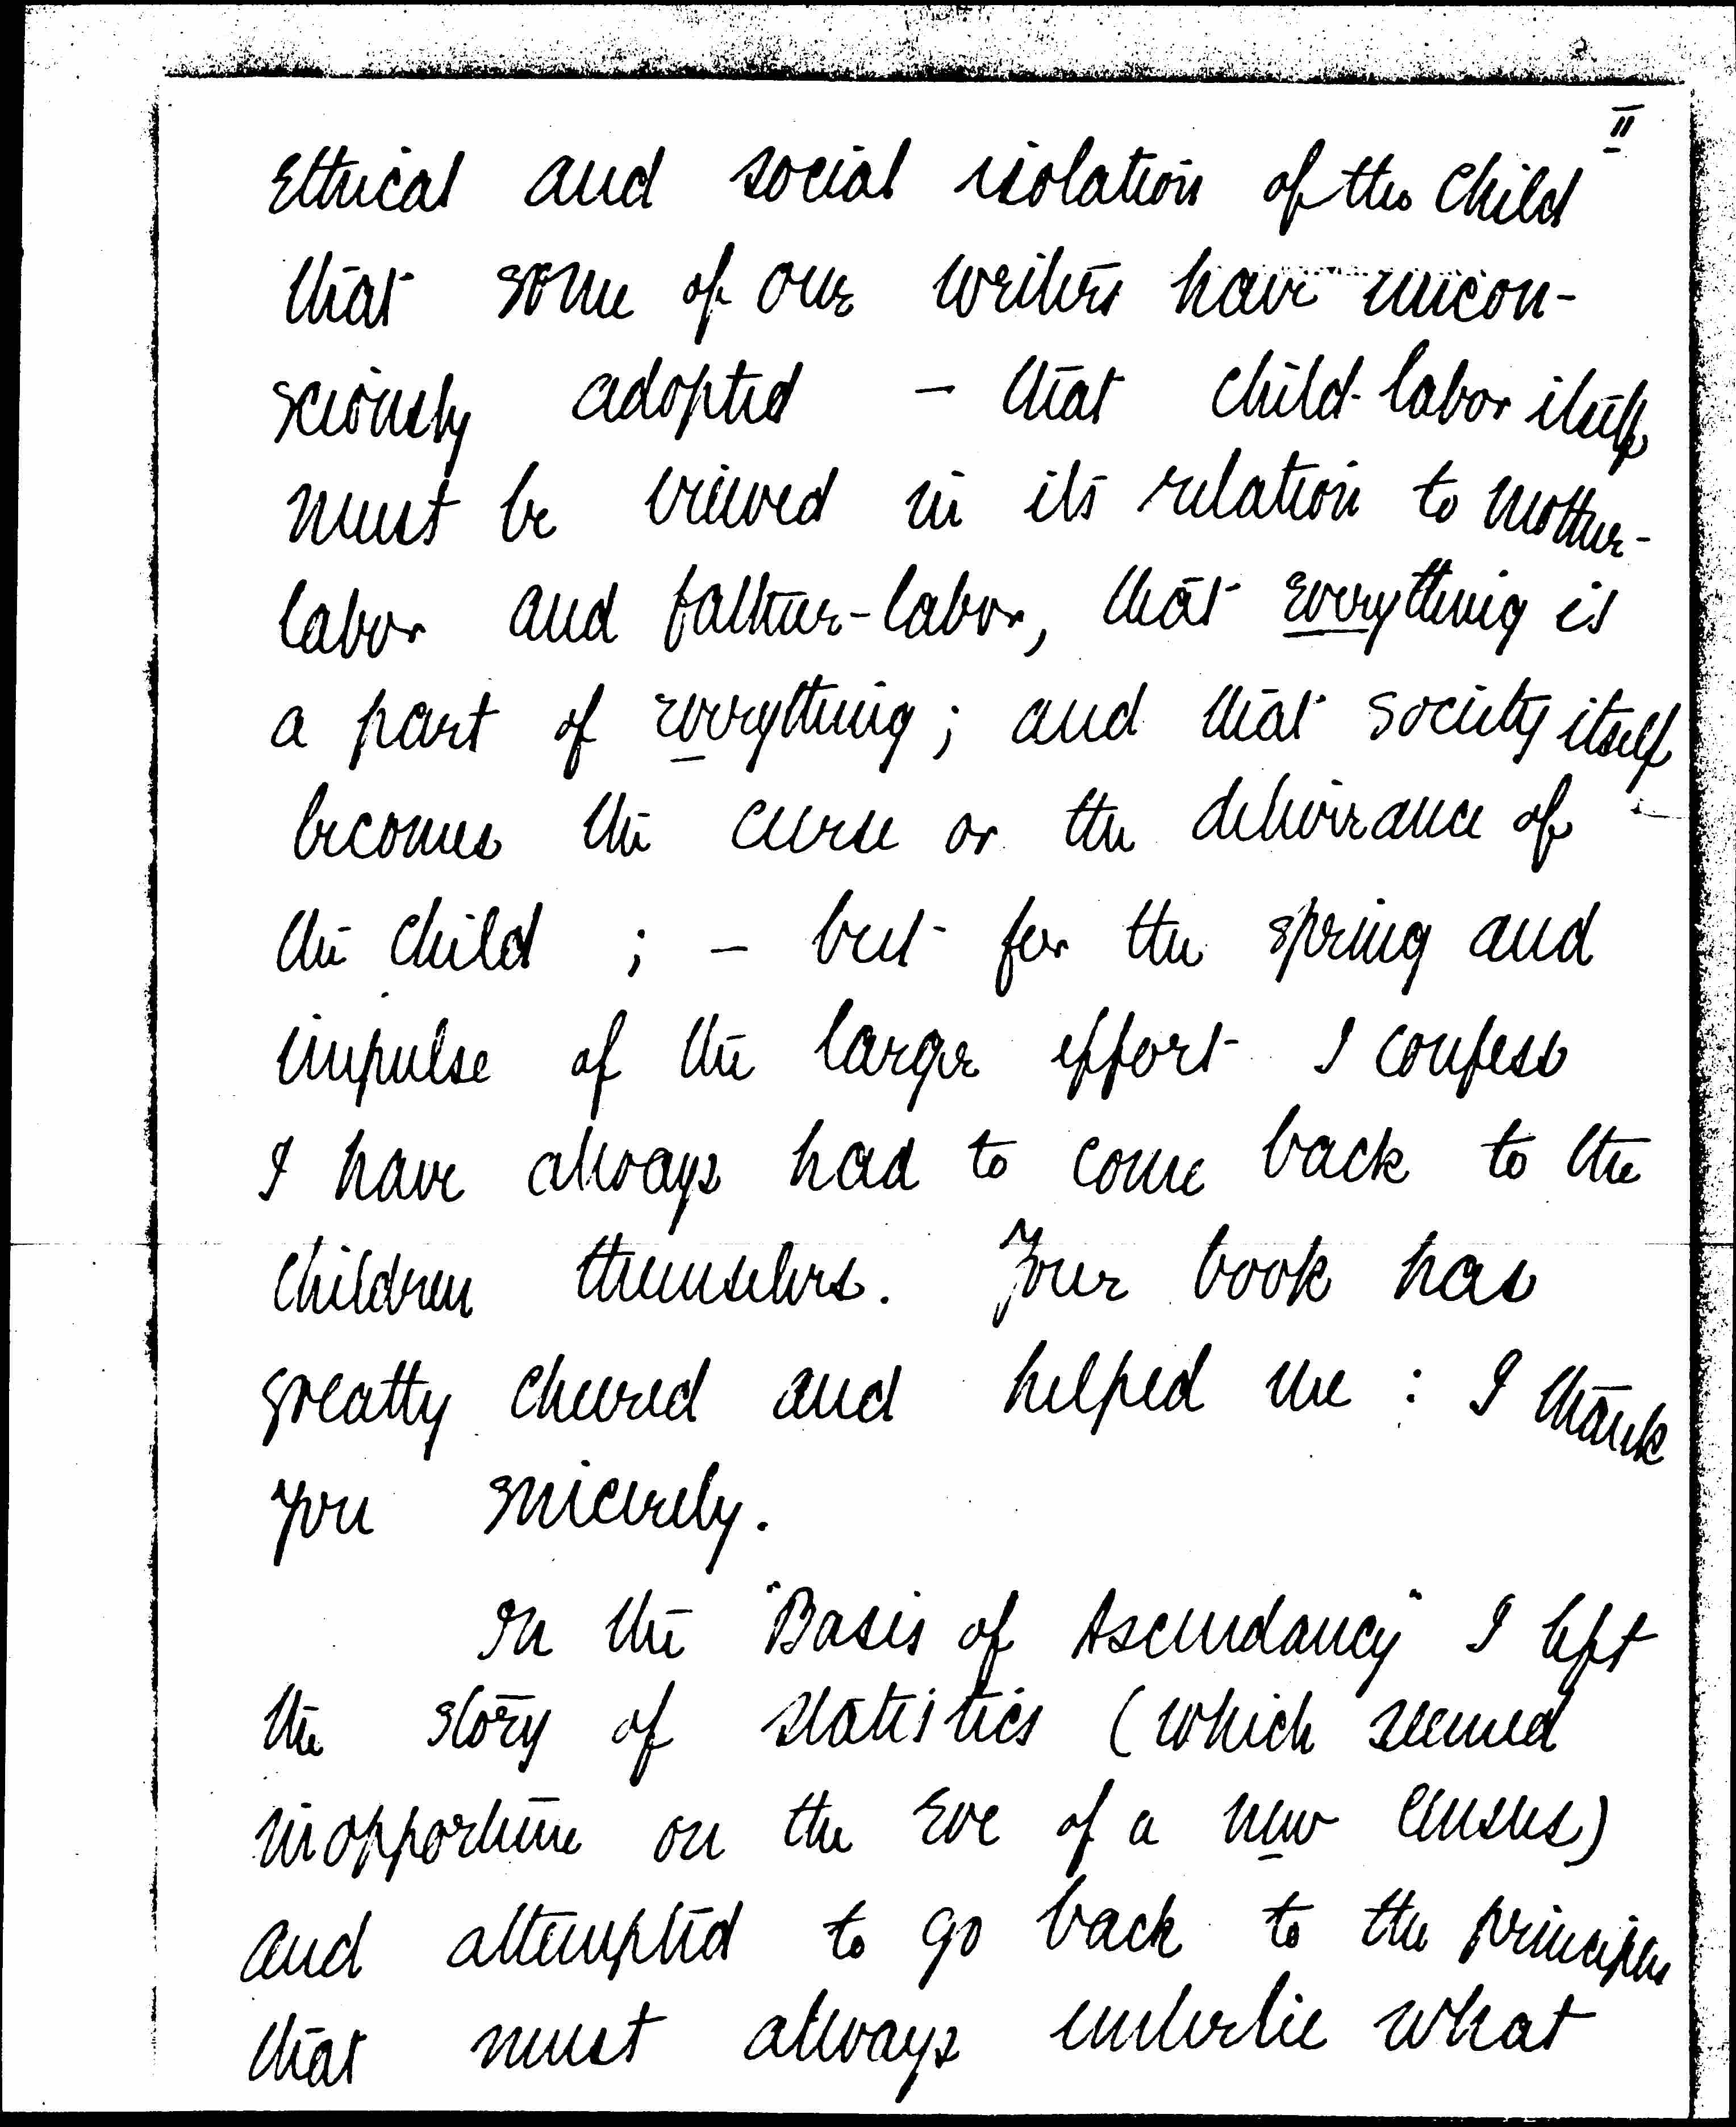 II
Ethical and social isolation of the child
that some of our writers have uncon-
sciously adopted – that child-labor itself
must be viewed in its relation to mother-
labor and father-labor, that everything is
a part of everything; and that society itself
becomes the curse or the deliverance of
the child ; – but for the spring and
impulse of the larger effort I confess
I have always had to come back to the
children themselves. Your book has
greatly cheered and helped me : I thank
you sincerely.
In the "Basis of Ascendancy" I left
the story of statistics (which seemed
inopportune on the eve of a new census)
and attempted to go back to the principles
that must always underlie what